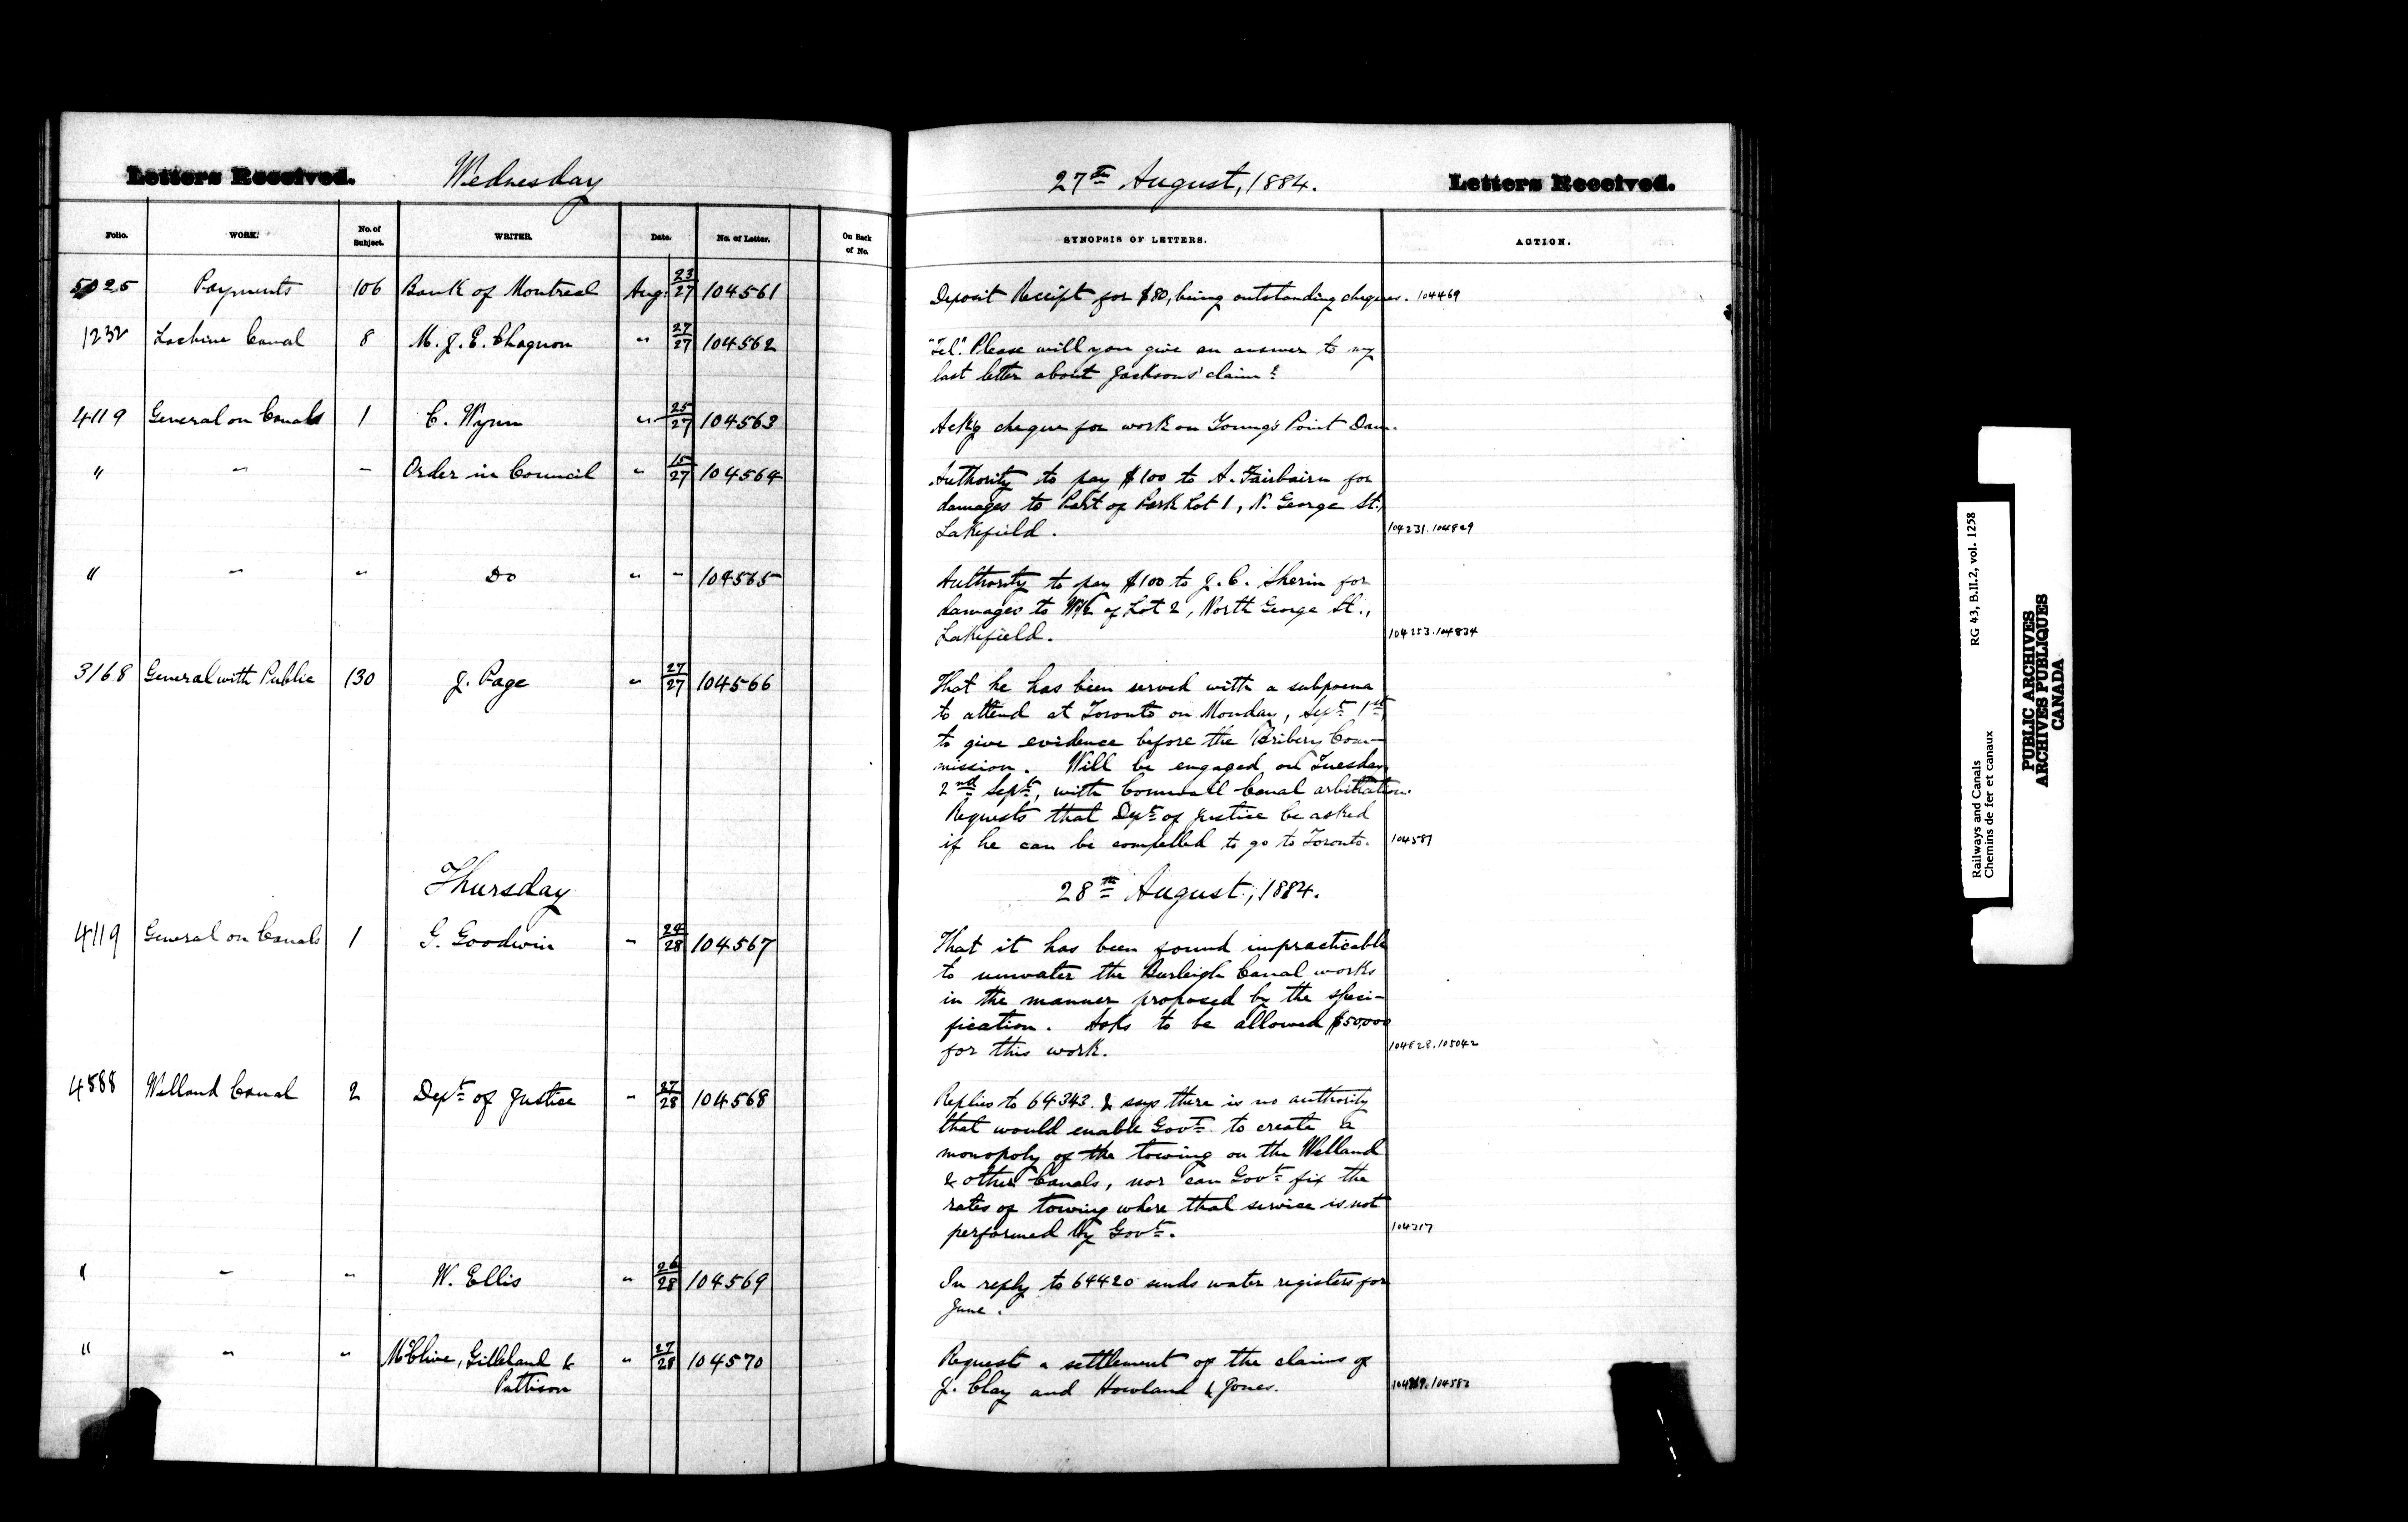 Letters Received. Wednesday 27th August, 1884. Letters Received.
Folio. WORK. No. of Subject. WRITER. Date. No. of Letter. On Back of No. SYNOPSIS OF LETTERS. ACTION.
5025 Payments 106 Bank of Montreal Aug. 23/27 104561 Deposit Receipt for $80, being outstanding cheques. 104469
1232 Lachine Canal 8 M. J. E. Chagnon " 27/27 104562 "Tel". Please will you give an answer to my
last letter about Jacksons' claim?
4119 General on Canals 1 C. Wynn " 25/27 104563 Ackg cheque for work on Young's Point Dam.
" " - Order in Council " 15/27 104564 Authority to pay $100 to A. Fairbairn for
damages to Part of Park Lot 1, N. George St.,
Lakefield. 104231. 104829
" " " Do " - 104565 Authority to pay $100 to J. C. Sherin for
damages to W½ of Lot 2, North George St.,
Lakefield. 104253. 104834
3168 General with Public 130 J. Page " 27/27 104566 That he has been served with a subpoena
to attend at Toronto on Monday, Sept. 1st,
to give evidence before the Bribery Com-
mission. Will be engaged on Tuesday
2nd Sept., with Cornwall Canal arbitration.
Requests that Dept. of Justice be asked
if he can be compelled to go to Toronto. 104587
Thursday 28th August, 1884.
4119 General on Canals 1 G. Goodwin " 24/28 104567 That it has been found impracticable
to unwater the Burleigh Canal works
in the manner proposed by the speci-
fication. Asks to be allowed $50,000
for this work. 104828. 105042
4588 Welland Canal 2 Dept. of Justice " 27/28 104568 Replies to 64343. & says there is no authority
that would enable Govt. to create a
monopoly of the towing on the Welland
& other Canals, nor can Govt. fix the
rates of towing where that service is not
performed by Govt. 104317
" " " W. Ellis " 26/28 104569 In reply to 64420 sends water registers for
June.
" " " McClive, Gilleland & " 27/28 104570 Requests a settlement of the claims of
Pattison J. Clay and Howland & Jones. 104583
Railways and Canals RG 43, B.III.2, vol. 1258
Chemins de fer et canaux
PUBLIC ARCHIVES
ARCHIVES PUBLIQUES
CANADA